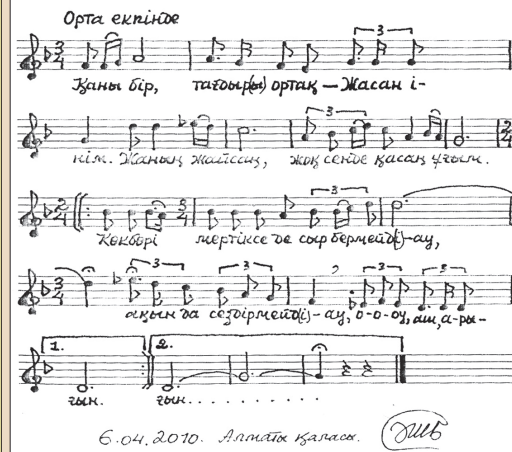 Орта екпінде
Қаны бір, тағдыр(ы) ортақ — Жасан і-
нім. Жаның жайсаң, жоқ сенде қасаң ұғым.
Көкбөрі мертіксе де сыр бермейд(і)-ау,
ақын да сездірмейд(і)-ау, о-о-оу, аш, а-ры-
1. 2.
ғын. ғын. . . . . . . . .
6.04.2010. Алматы қаласы.